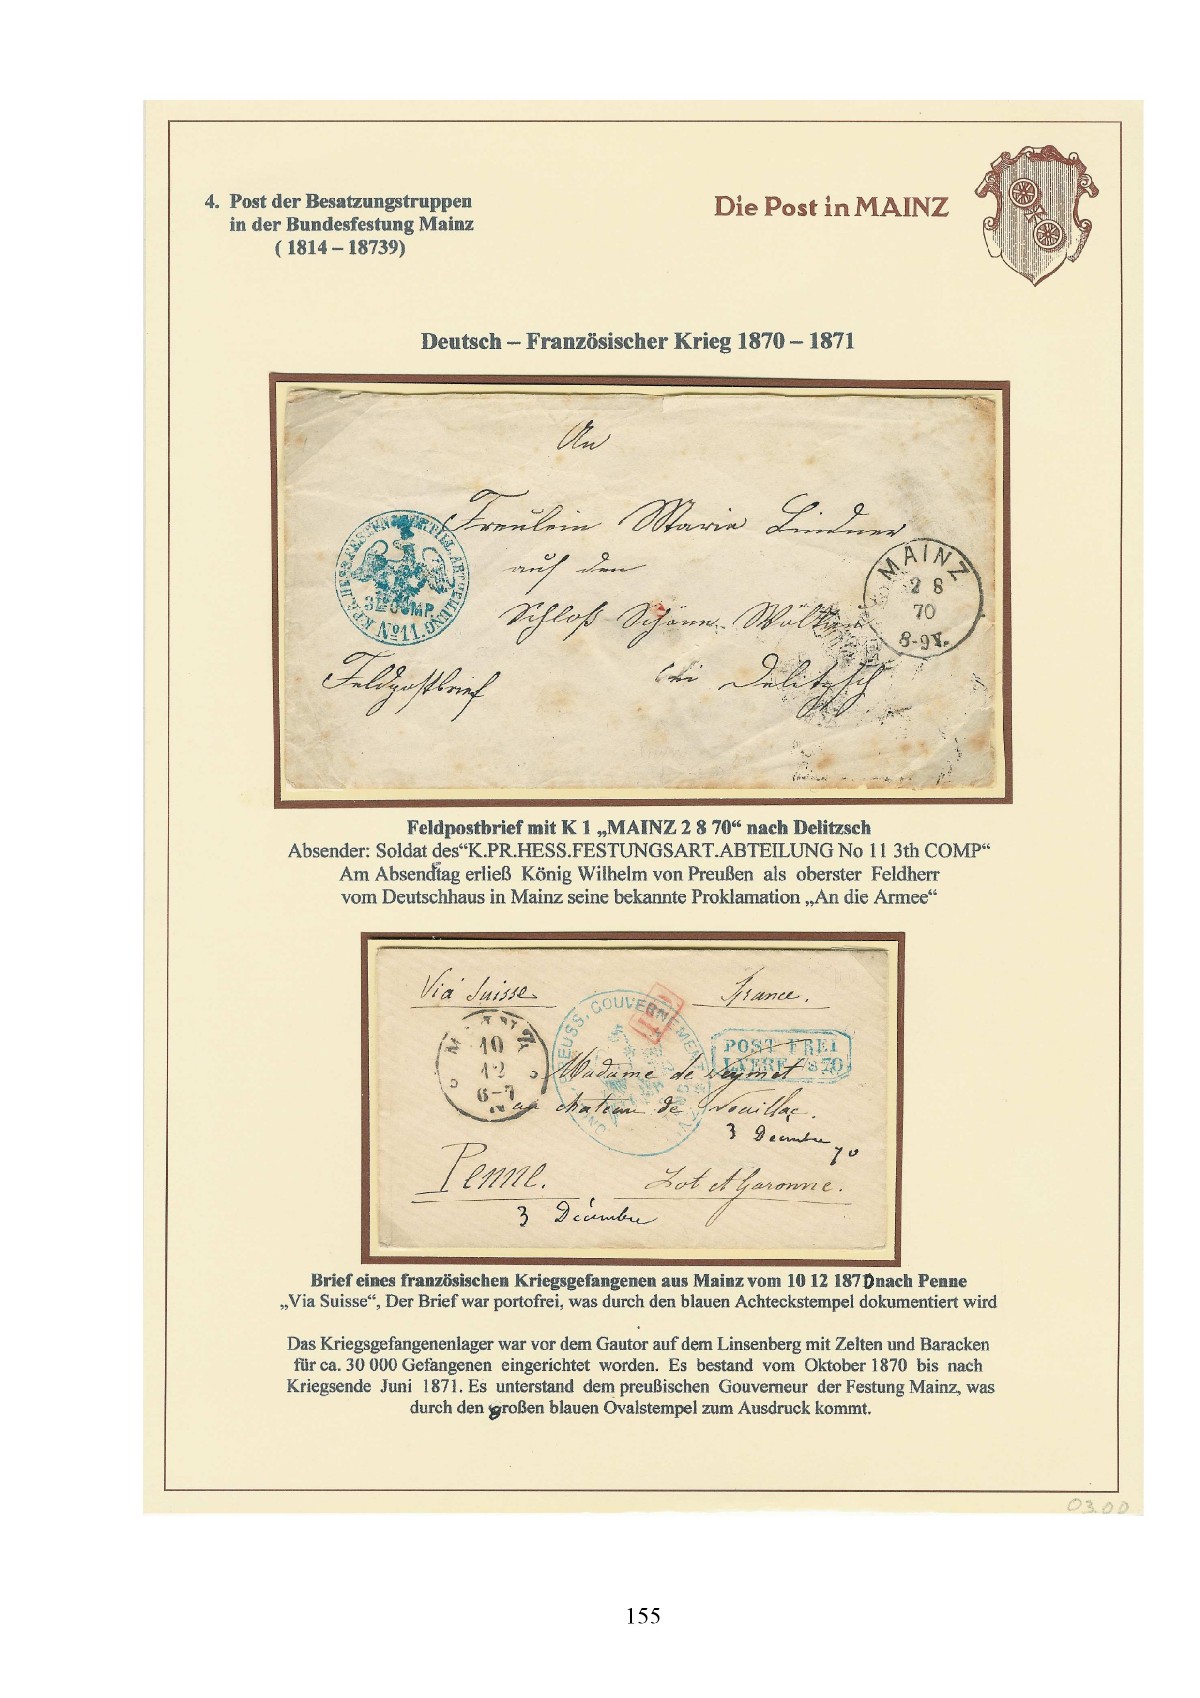 4. Post der Besatzungstruppen
in der Bundesfestung Mainz
( 1814 – 18739)
Die Post in MAINZ
Deutsch – Französischer Krieg 1870 – 1871
An
Fräulein Marie Lindner
auf dem
Schloß Schöne Wölkau
bei Delitzsch
Feldpostbrief
3TE COMP.
MAINZ
2 8
70
8-9V.
Feldpostbrief mit K 1 „MAINZ 2 8 70“ nach Delitzsch
Absender: Soldat des“K.PR.HESS.FESTUNGSART.ABTEILUNG No 11 3th COMP“
Am Absendtag erließ König Wilhelm von Preußen als oberster Feldherr
vom Deutschhaus in Mainz seine bekannte Proklamation „An die Armee“
Via Suisse
France.
10
12
6-7
PREUSS. GOUVERNEMENT
POST FREI
Madame de
au chateau de
3 Décembre
70
Penne.
Lot et Garonne.
3 Décembre
Brief eines französischen Kriegsgefangenen aus Mainz vom 10 12 1870nach Penne
„Via Suisse“, Der Brief war portofrei, was durch den blauen Achteckstempel dokumentiert wird
Das Kriegsgefangenenlager war vor dem Gautor auf dem Linsenberg mit Zelten und Baracken
für ca. 30 000 Gefangenen eingerichtet worden. Es bestand vom Oktober 1870 bis nach
Kriegsende Juni 1871. Es unterstand dem preußischen Gouverneur der Festung Mainz, was
durch den großen blauen Ovalstempel zum Ausdruck kommt.
03.00
155